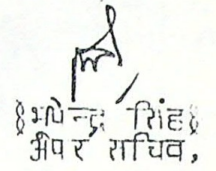 (भूपेन्द्र सिंह)
अपर सचिव,